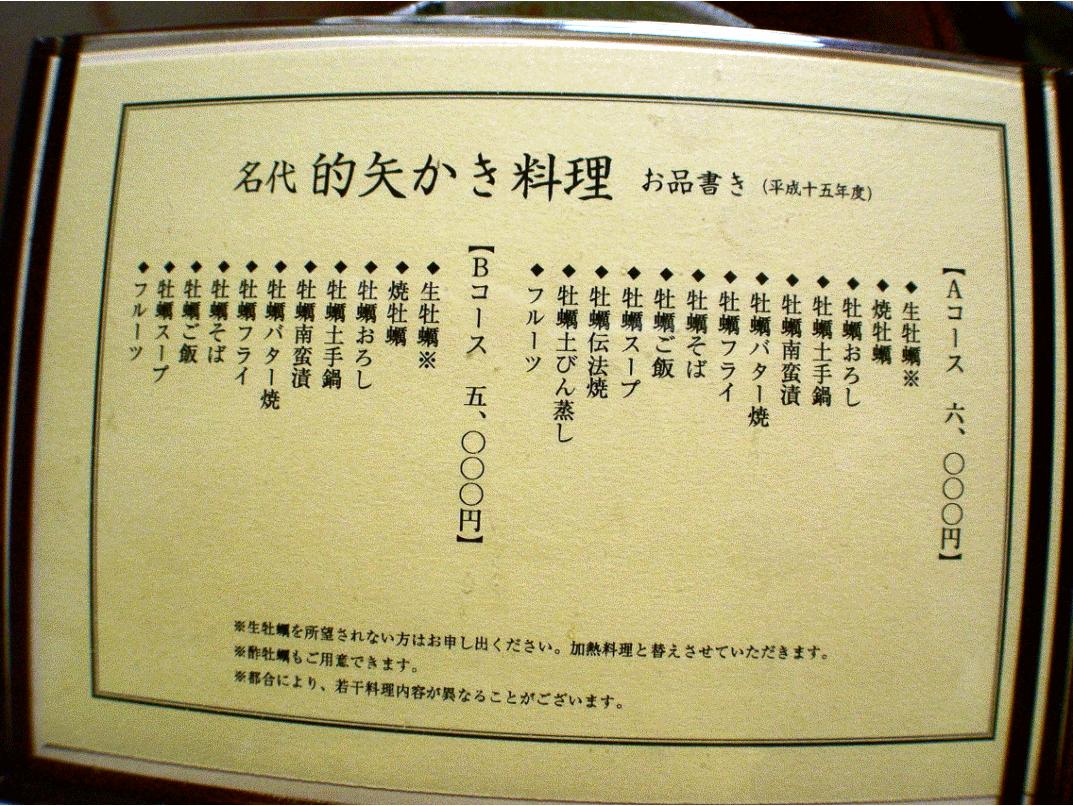 名代 的矢かき料理 お品書き (平成十五年度)
【Aコース 六、〇〇〇円】
◆生牡蠣※
◆焼牡蠣
◆牡蠣おろし
◆牡蠣土手鍋
◆牡蠣南蛮漬
◆牡蠣バター焼
◆牡蠣フライ
◆牡蠣そば
◆牡蠣ご飯
◆牡蠣スープ
◆牡蠣伝法焼
◆牡蠣土びん蒸し
◆フルーツ
【Bコース 五、〇〇〇円】
◆生牡蠣※
◆焼牡蠣
◆牡蠣おろし
◆牡蠣土手鍋
◆牡蠣南蛮漬
◆牡蠣バター焼
◆牡蠣フライ
◆牡蠣そば
◆牡蠣ご飯
◆牡蠣スープ
◆フルーツ
※生牡蠣を所望されない方はお申し出ください。加熱料理と替えさせていただきます。
※酢牡蠣もご用意できます。
※都合により、若干料理内容が異なることがございます。